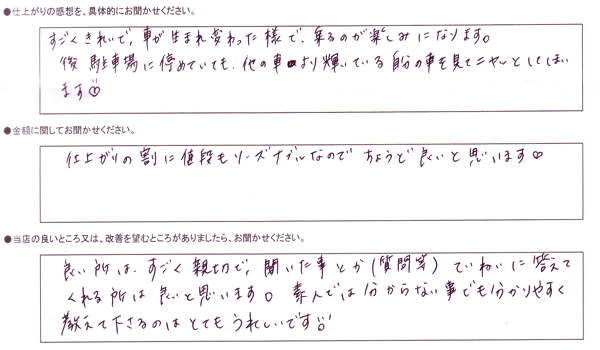 ●仕上がりの感想を、具体的にお聞かせください。
すごくきれいで、車が生まれ変わった様で、乗るのが楽しみになります。
後 駐車場に停めていても、他の車より輝いている自分の車を見てニヤッとしてしまい
ます♡
●金額に関してお聞かせください。
仕上がりの割に値段もリーズナブルなので ちょうど良いと思います♡
●当店の良いところ又は、改善を望むところがありましたら、お聞かせください。
良い所は、すごく親切で、聞いた事とか(質問等)ていねいに答えて
くれる所は良いと思います。素人では分からない事でも分かりやすく
教えて下さるのはとてもうれしいです